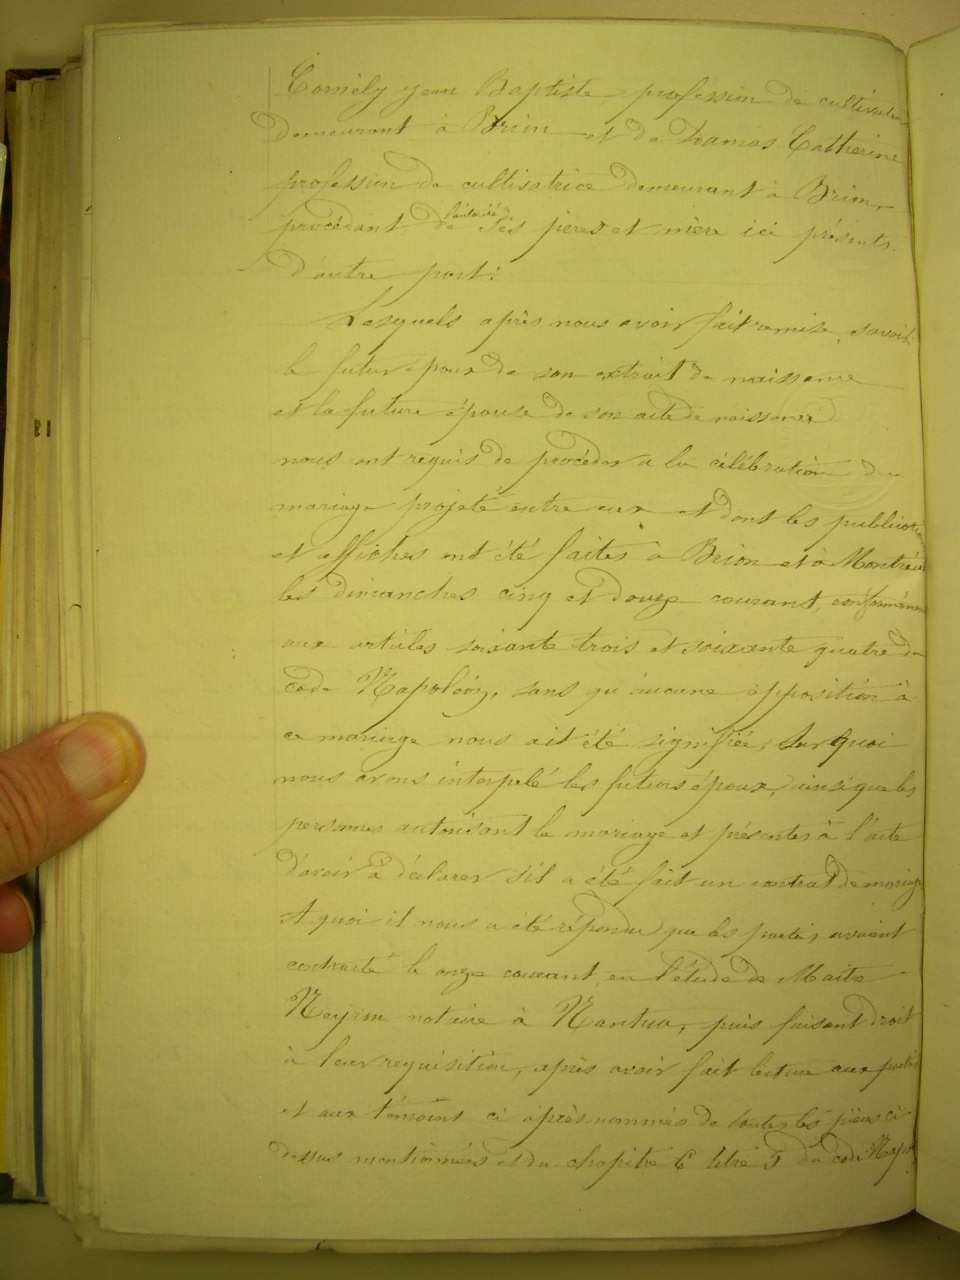 Comély jean Baptiste profession de cultivateur
demeurant à Brion et de Thomas Catherine
profession de cultivatrice demeurant à Brion,
procédant de l'autorité de ses pères et mère ici présents.
d'autre part:
Lesquels après nous avoir fait remise, savoir:
le futur époux de son extrait de naissance
et la future épouse de son acte de naissance
nous ont requis de procéder a la célébration du
mariage projeté entre eux et dont les publications
et affiches ont été faites à Brion et à Montréal
les dimanches cinq et douze courant, conformément
aux articles soixante trois et soixante quatre du
code Napoléon, sans qu'aucune opposition à
ce mariage nous ait été signifiée; Sur quoi
nous avons interpelé les futurs époux, ainsi que les
personnes autorisant le mariage et présentes à l'acte
d'avoir à déclarer s'il a été fait un contrat de mariage
A quoi il nous a été répondu que les parties avaient
contracté le onze courant en l'étude de Maitre
notaire à Nantua, puis faisant droit
à leur requisition, après avoir fait lecture aux parties
et aux témoins ci après nommés de toutes les pièces ci
dessus mentionnées et du chapitre 6 titre 5 du code Napol